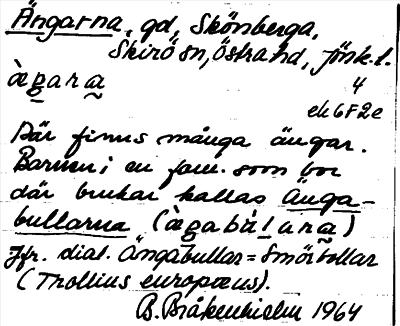 Ängarna, gd, Skönberga,
Skirö sn, Östrand, Jönk. l.
àgara
4
ek 6F2e
Där finns många ängar.
Barnen i en fam. som bor
där brukar kallas Änga-
bullarna (àgabúlara)
Jfr. dial. Ängabullar = Smörbollar
(Trollius europæus).
B. Bråkenhielm 1964